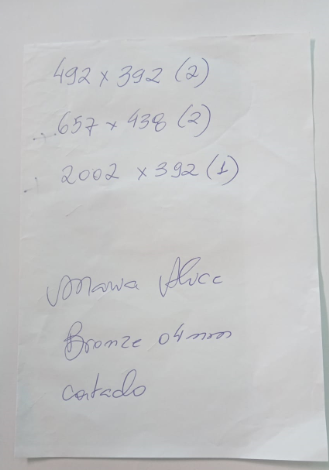 492 x 392 (2)
657 x 438 (2)
2002 x 392 (1)
Bronze 04mm
cortado